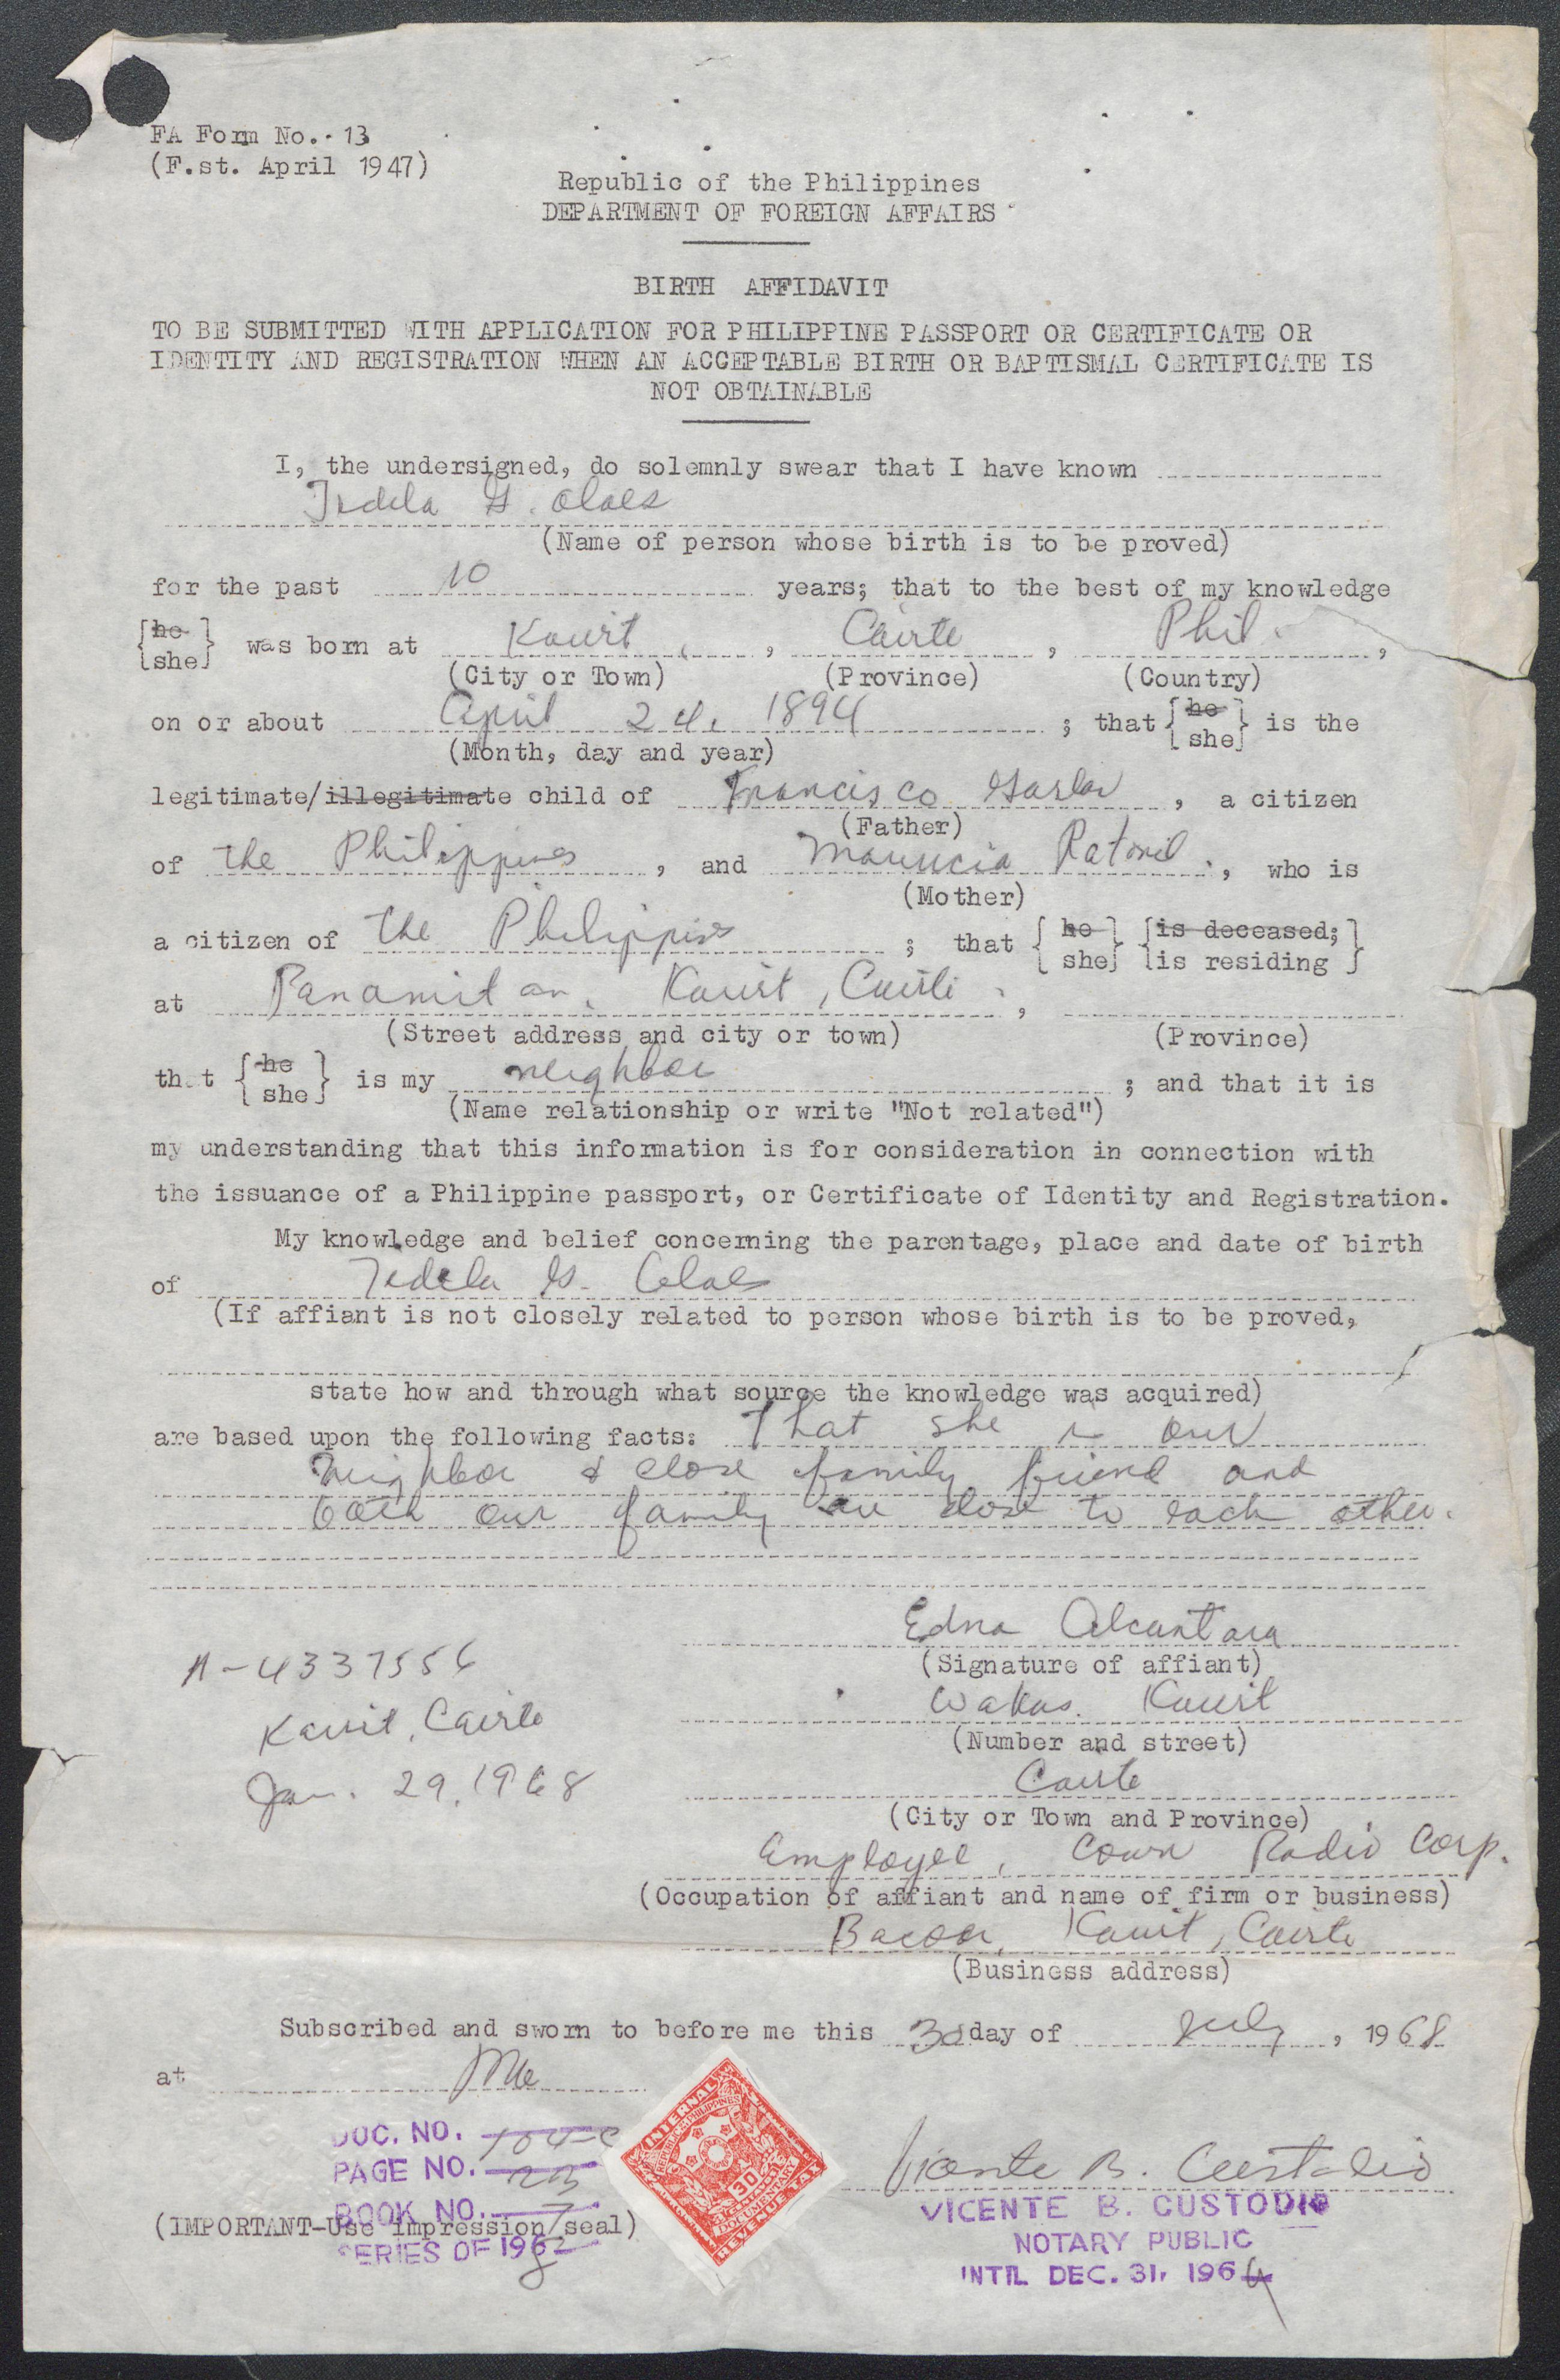 FA Form No. 13
(F.st. April 1947)
Republic of the Philippines
DEPARTMENT OF FOREIGN AFFAIRS
BIRTH AFFIDAVIT
TO BE SUBMITTED WITH APPLICATION FOR PHILIPPINE PASSPORT OR CERTIFICATE OR
IDENTITY AND REGISTRATION WHEN AN ACCEPTABLE BIRTH OR BAPTISMAL CERTIFICATE IS
NOT OBTAINABLE
I, the undersigned, do solemnly swear that I have known
G. Olaes
(Name of person whose birth is to be proved)
for the past 10 years; that to the best of my knowledge
{he she} was born at Kawit, Cavite, Phil.,
(City or Town) (Province) (Country)
on or about April 24, 1894; that {he she} is the
(Month, day and year)
legitimate/illegitimate child of Francisco, a citizen
(Father)
of the Philippines, and, who is
(Mother)
a citizen of the Philippines; that {he she} {is deceased; is residing}
at Panamitan, Kawit, Cavite,
(Street address and city or town) (Province)
that {he she} is my neighbor; and that it is
(Name relationship or write "Not related")
my understanding that this information is for consideration in connection with
the issuance of a Philippine passport, or Certificate of Identity and Registration.
My knowledge and belief concerning the parentage, place and date of birth
of G. Olaes
(If affiant is not closely related to person whose birth is to be proved,
state how and through what source the knowledge was acquired)
are based upon the following facts: That she is our
neighbor & close family friend and
both our family are close to each other.
Edna Alcantara
(Signature of affiant)
A-4337556
Wakas, Kawit
Kawit, Cavite
(Number and street)
Jan. 29, 1968
Cavite
(City or Town and Province)
Employee, Radio Corp.
(Occupation of affiant and name of firm or business)
Bacoor, Kawit, Cavite
(Business address)
Subscribed and sworn to before me this day of July, 1968
at Mla
DOC. NO.
PAGE NO.
BOOK NO.
(IMPORTANT-Use impression seal)
SERIES OF 1968
INTERNAL
REPUBLIC OF PHILIPPINES
30
CENTAVOS
DOCUMENTARY
REVENUE TAX
Vicente B. Custodio
VICENTE B. CUSTODIO
NOTARY PUBLIC
UNTIL DEC. 31, 196